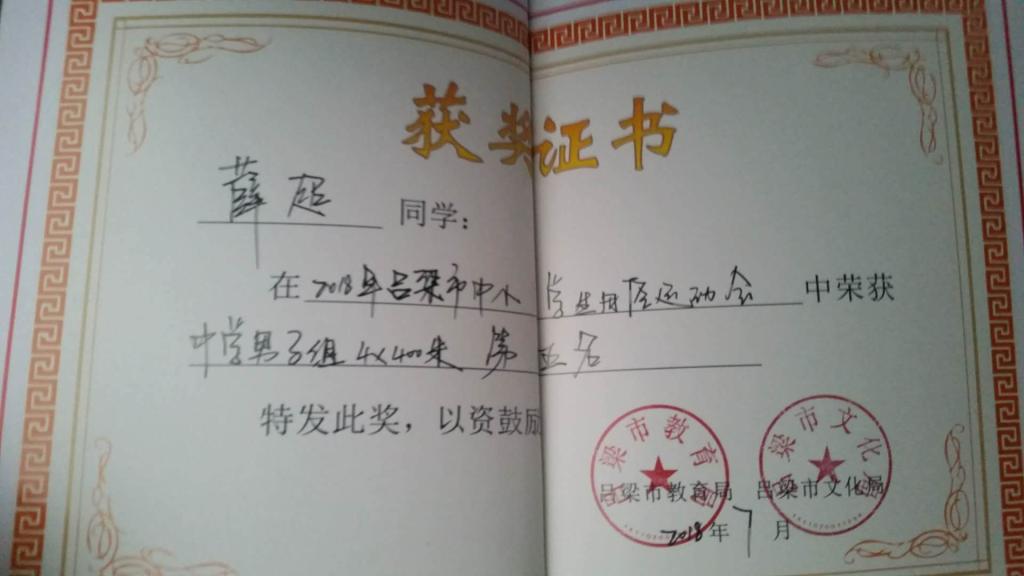 获奖证书
薛超 同学:
在2018年吕梁市中小学生田径运动会中荣获
中学男子组4×400米 第五名
特发此奖，以资鼓励
梁市教育
梁市文化
吕梁市教育局 吕梁市文化局
2018年7月